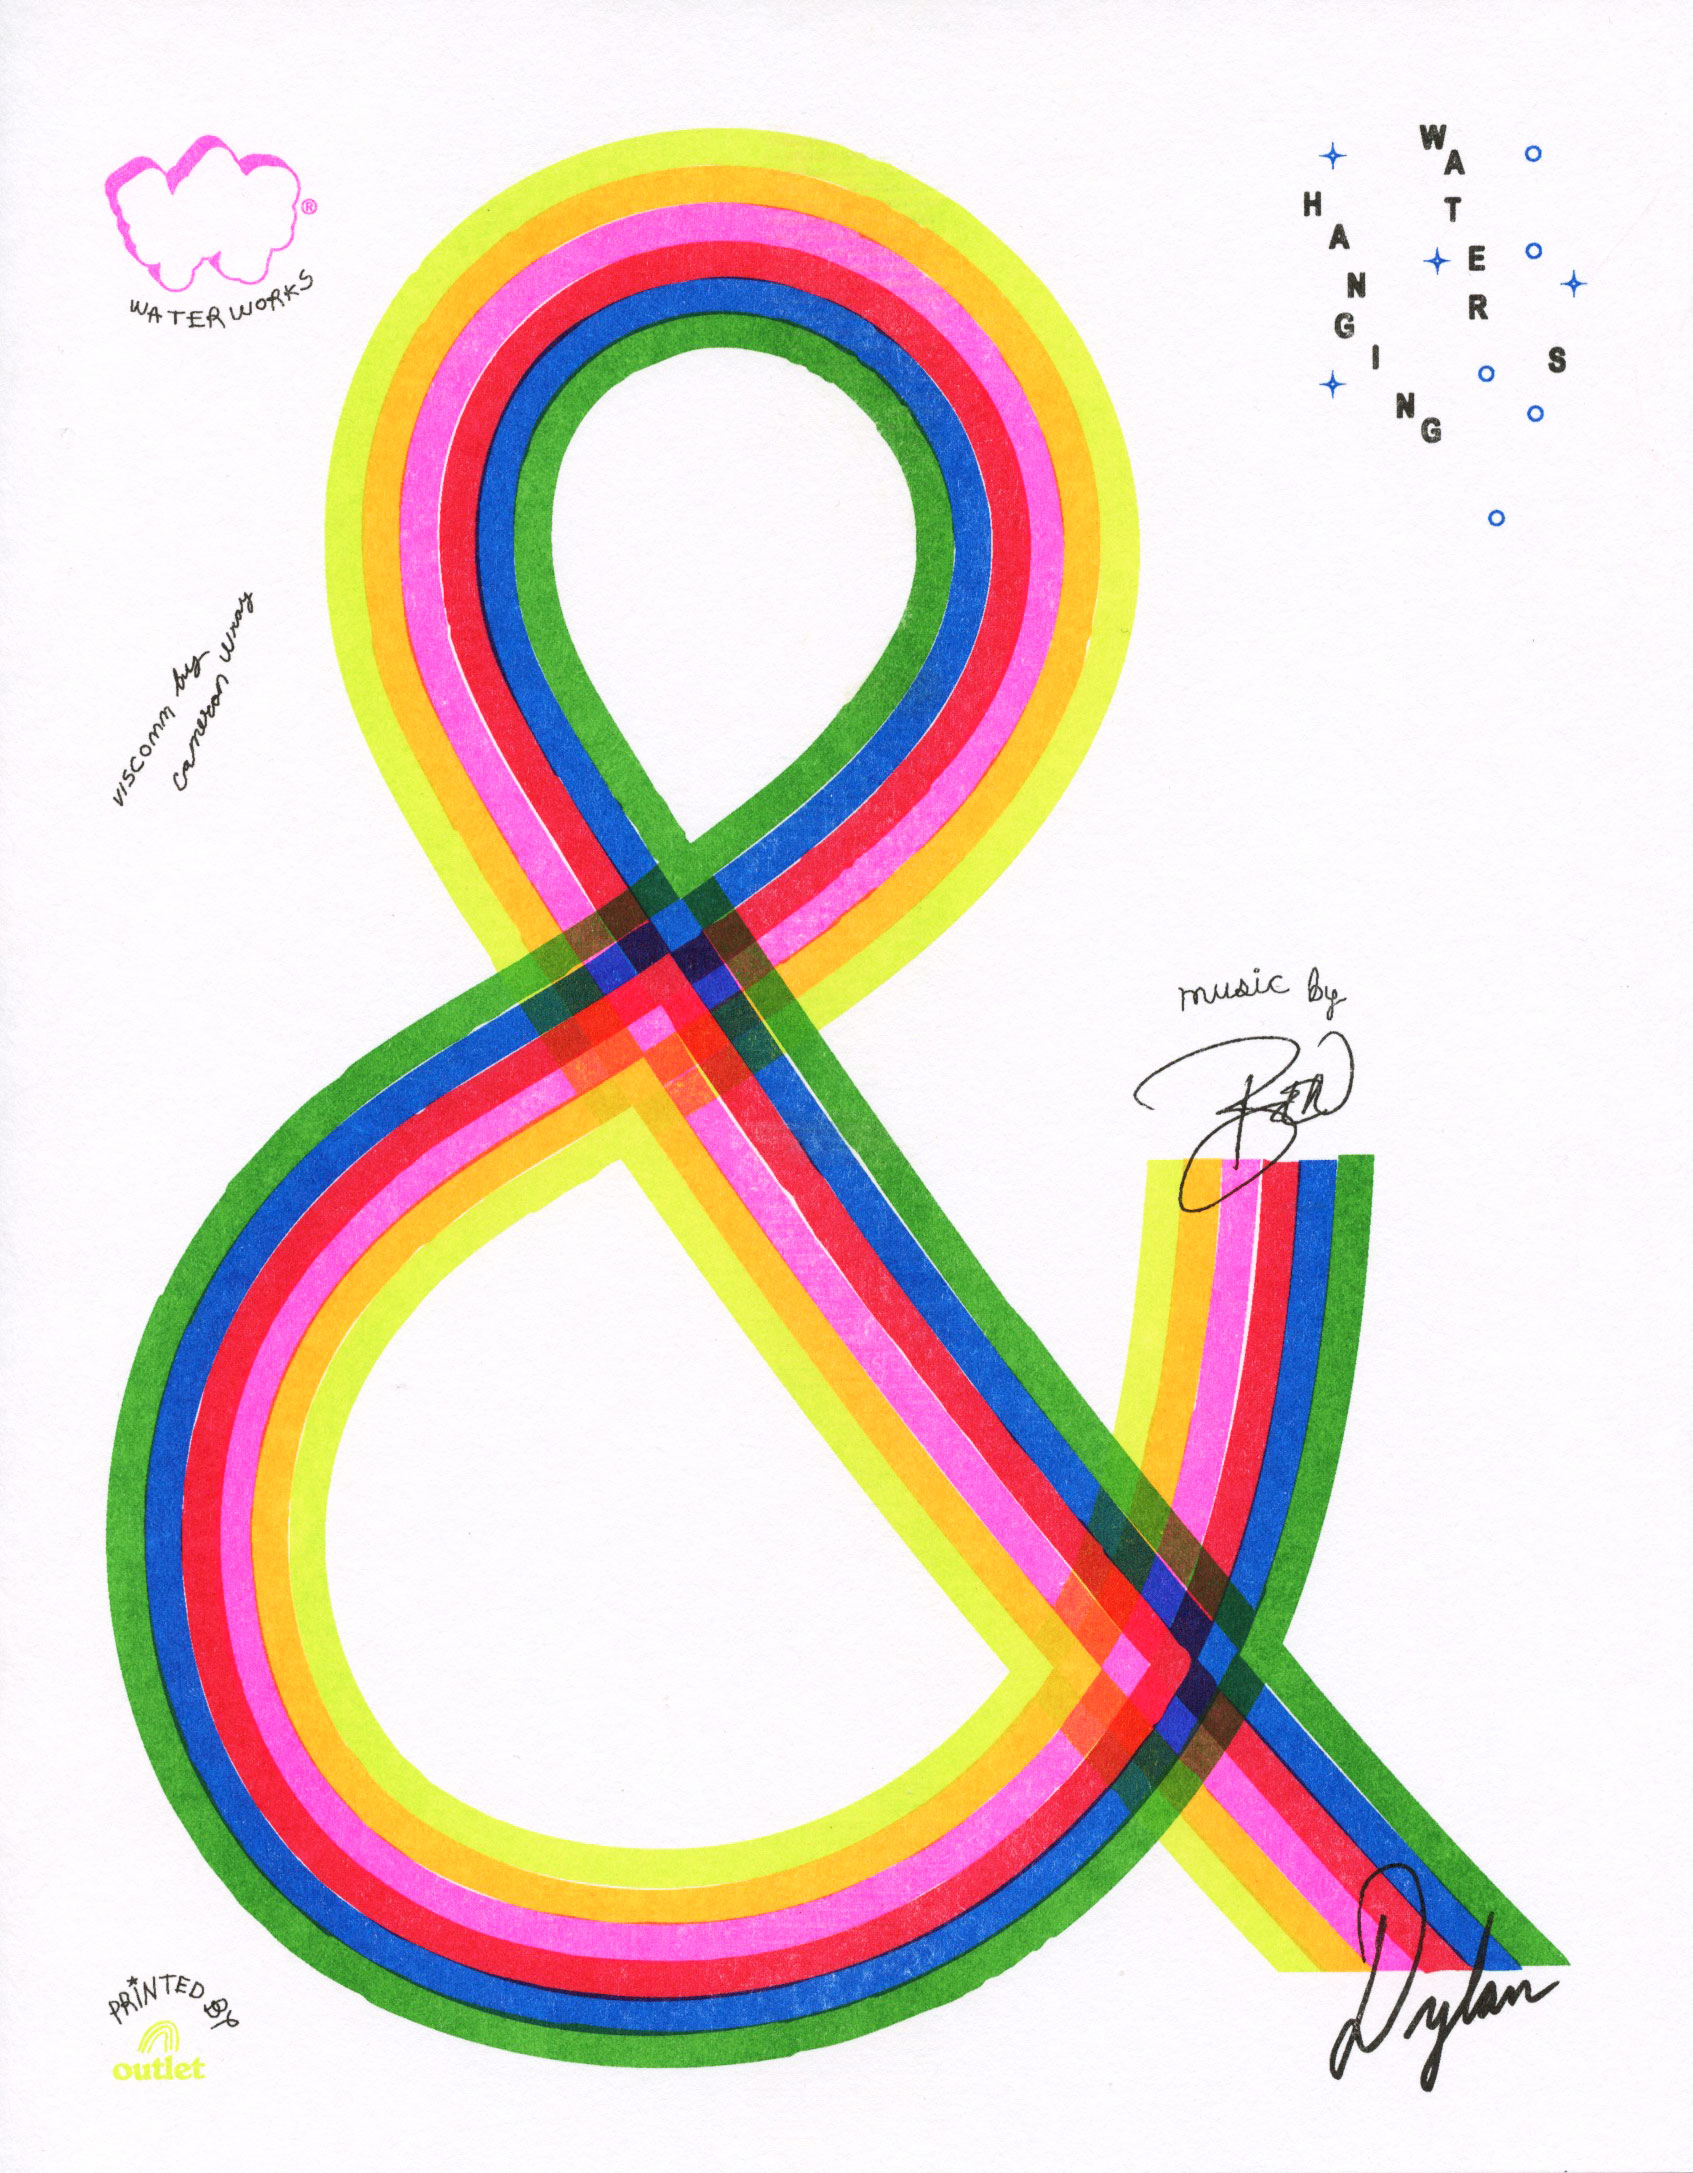 ®
WATERWORKS
HANGING
WATERS
viscomm by
cameron wray
music by
Ben
&
Dylan
PRiNTED by
outlet